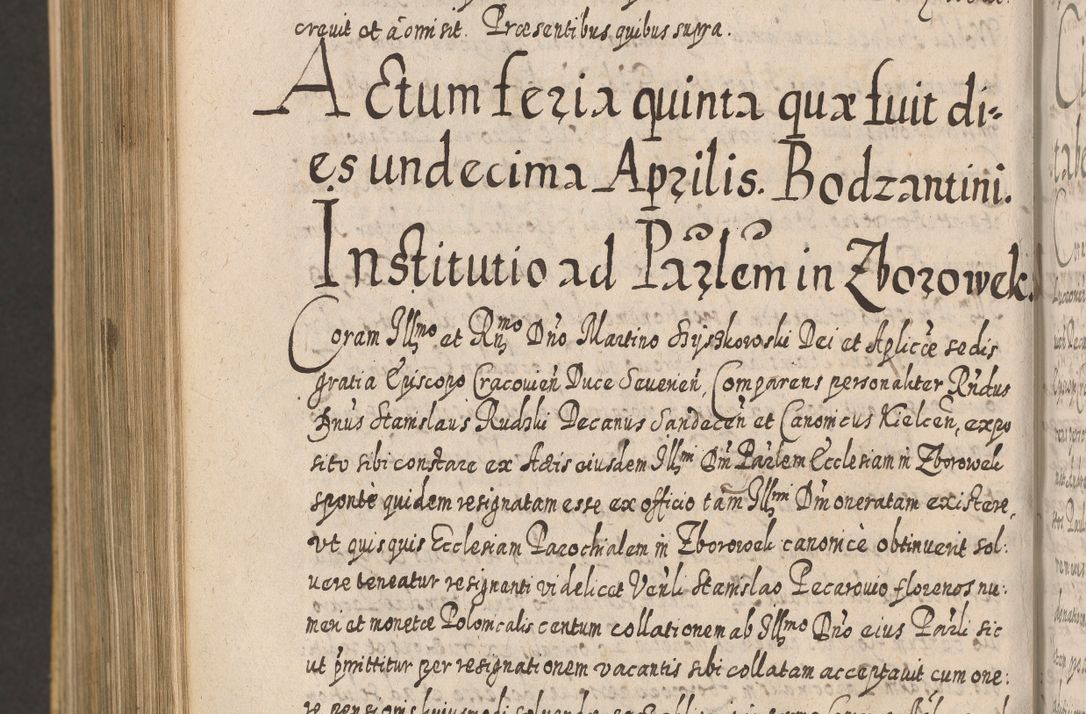 creuit et admisit. Præsentibus quibus supra.
Actum feria quinta quæ fuit di=
es undecima Aprilis. Bodzantini.
Institutio ad Parlem in Zborowek.
Coram Illmo et Rndmo Dno Martino Szyszkowski Dei et Aplicæ sedis
gratia Episcopo Cracovien Duce Severien, Comparens personaliter Rndus
Dnus Stanislaus Rudzki Decanus Sandecen et Canonicus Kielcen, expo
sito sibi constare ex Actis eiusdem Illmi Dni Parlem Ecclesiam in Zborowek
spontè quidem resignatam esse ex officio tam Illmi Dni oneratam existere,
ut quisquis Ecclesiam Parochialem in Zborowek canonicè obtinuerit sol:
vere teneatur resignanti videlicet Venli Stanislao Pecarovio florenos nu:
men et monetæ Polonicalis centum collationem ab Illmo Dno eius Parli sic
ut pmittitur per resignationem vacantis sibi collatam acceptavit cum one:
re pensionis huiusmodi solvendæ